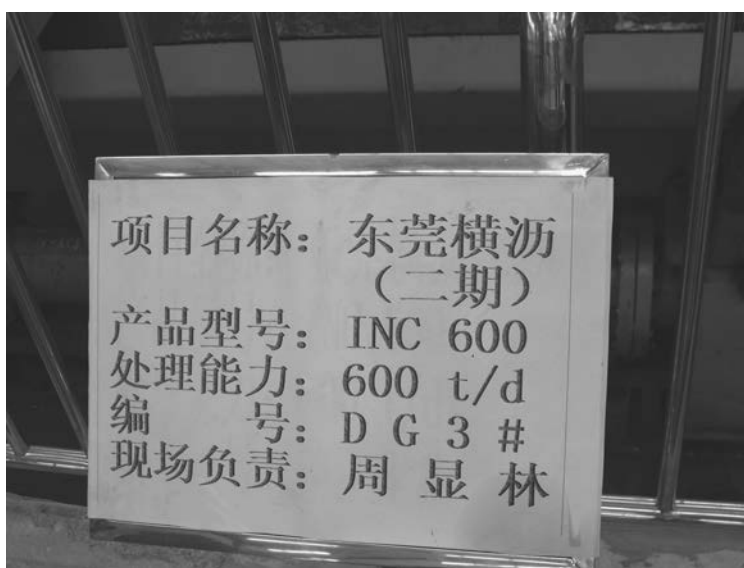 项目名称：东莞横沥
（二期）
产品型号：INC 600
处理能力：600 t/d
编 号：D G 3 #
现场负责：周 显 林